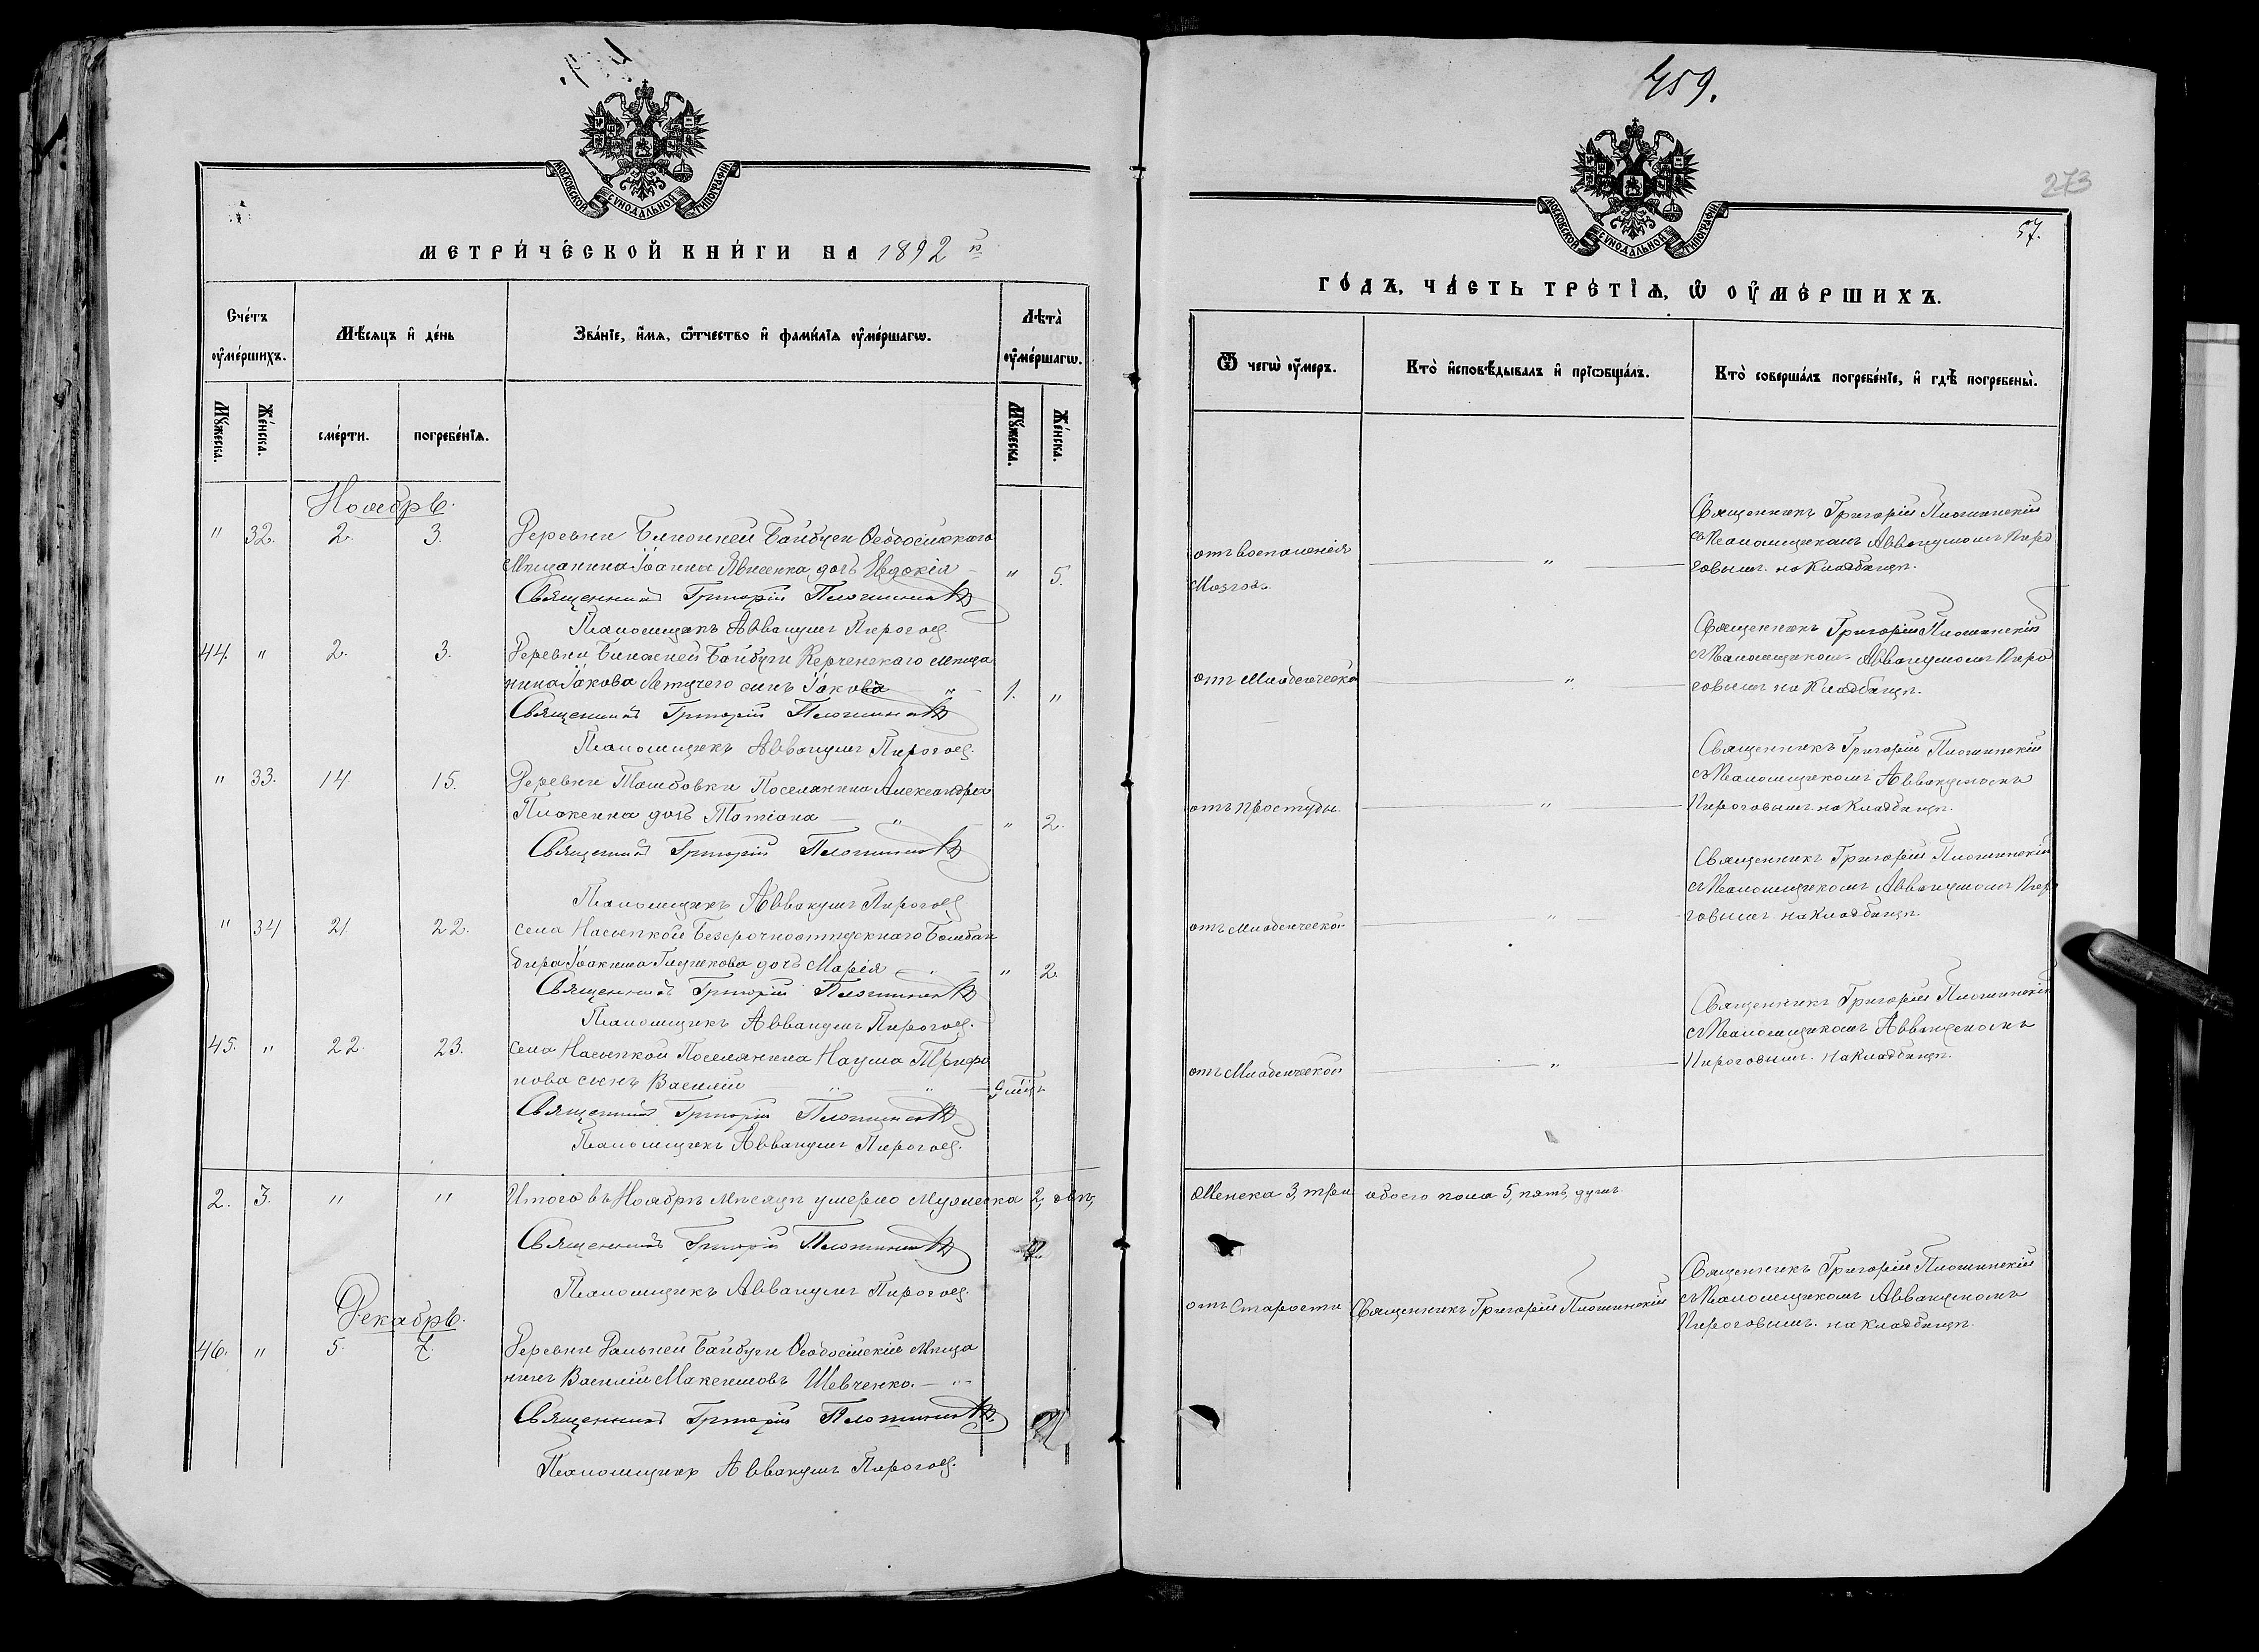 459.
273
57.
МОСКОВСКОЙ СѴНОДАЛЬНОЙ ТИПОГРАФІИ
МЕТРИ́ЧЕСКОЙ КНИ́ГИ НА 1892 й
Сче́тъ ᲂу҆ме́ршихъ.
Мѣ́сяцъ и҆ де́нь
Зва́нїе, и҆́мя, ѻ҆́тчество и҆ фами́лїя ᲂу҆ме́ршагѡ.
Лѣта̀ ᲂу҆ме́ршагѡ.
Мꙋ́жеска.
Же́нска.
сме́рти.
погребе́нїѧ.
Мꙋ́жеска.
Же́нска.
Ноябрь.
" 32. 2. 3. Деревни Ближней Байбуги Ѳеодосійскаго
Мѣщанина Іоанна Явисенка дочь Евдокія " 5.
Священникъ Григорій Пложинскій
Псаломщикъ Аввакумъ Пироговъ.
44. " 2. 3. Деревни Ближней Байбуги Керченскаго мѣща
нина Іакова Летучего сынъ Іаковъ " 1. "
Священникъ Григорій Пложинскій
Псаломщикъ Аввакумъ Пироговъ.
" 33. 14 15. Деревни Тамбовки Поселянина Александра
Плаксина дочь Татіана " " 2.
Священникъ Григорій Пложинскій
Псаломщикъ Аввакумъ Пироговъ.
" 34 21 22. села Насыпкой Безсрочноотпускнаго Бомбан
дира Іоакима Глушкова дочь Марія " " 2.
Священникъ Григорій Пложинскій
Псаломщикъ Аввакумъ Пироговъ.
45. " 22. 23. села Насыпкой Поселянина Наума Трифо
нова сынъ Василій " "
Священникъ Григорій Пложинскій
Псаломщикъ Аввакумъ Пироговъ.
2. 3. " " Итого въ Ноябрѣ мѣсяцѣ умерло Мужеска 2, два,
Священникъ Григорій Пложинскій
Псаломщикъ Аввакумъ Пироговъ.
Декабрь.
46. " 5. 7. Деревни Дальней Байбуги Ѳеодосійскій Мѣща
нинъ Василій Максимовъ Шевченко. "
Священникъ Григорій Пложинскій.
Псаломщикъ Аввакумъ Пироговъ.
МОСКОВСКОЙ СѴНОДАЛЬНОЙ ТИПОГРАФІИ
ГО́ДЪ, ЧА́СТЬ ТРЕ́ТЇѦ, Ѡ҆ ОУ҆МЕ́РШИХЪ.
Ѿ чегѡ̀ ᲂу҆́меръ.
Кто̀ и҆сповѣ́дывалъ и҆ прїѡбща́лъ.
Кто̀ соверша́лъ погребе́нїе, и҆ гдѣ̀ погребены̀.
отъ воспаленія
Мозга.
"
Священникъ Григорій Пложинскій
съ Псаломщикомъ Аввакумомъ Пиро
говымъ. на Кладбищѣ.
отъ Младенческой
"
Священникъ Григорій Пложинскій
съ Псаломщикомъ Аввакумомъ Пиро
говымъ на Кладбищѣ.
отъ простуды.
"
Священникъ Григорій Пложинскій
съ Псаломщикомъ Аввакумомъ
Пироговымъ. на Кладбищѣ.
отъ младенческой
"
Священникъ Григорій Пложинскій
съ Псаломщикомъ Аввакумомъ Пиро
говымъ на Кладбищѣ.
отъ Младенческой
"
Священникъ Григорій Пложинскій
съ Псаломщикомъ Аввакумомъ
Пироговымъ. на Кладбищѣ.
Женска 3, три обоего пола 5, пять, душъ.
отъ Старости
Священникъ Григорій Пложинскій
Священникъ Григорій Пложинскій
съ Псаломщикомъ Аввакумомъ
Пироговымъ. на Кладбищѣ.